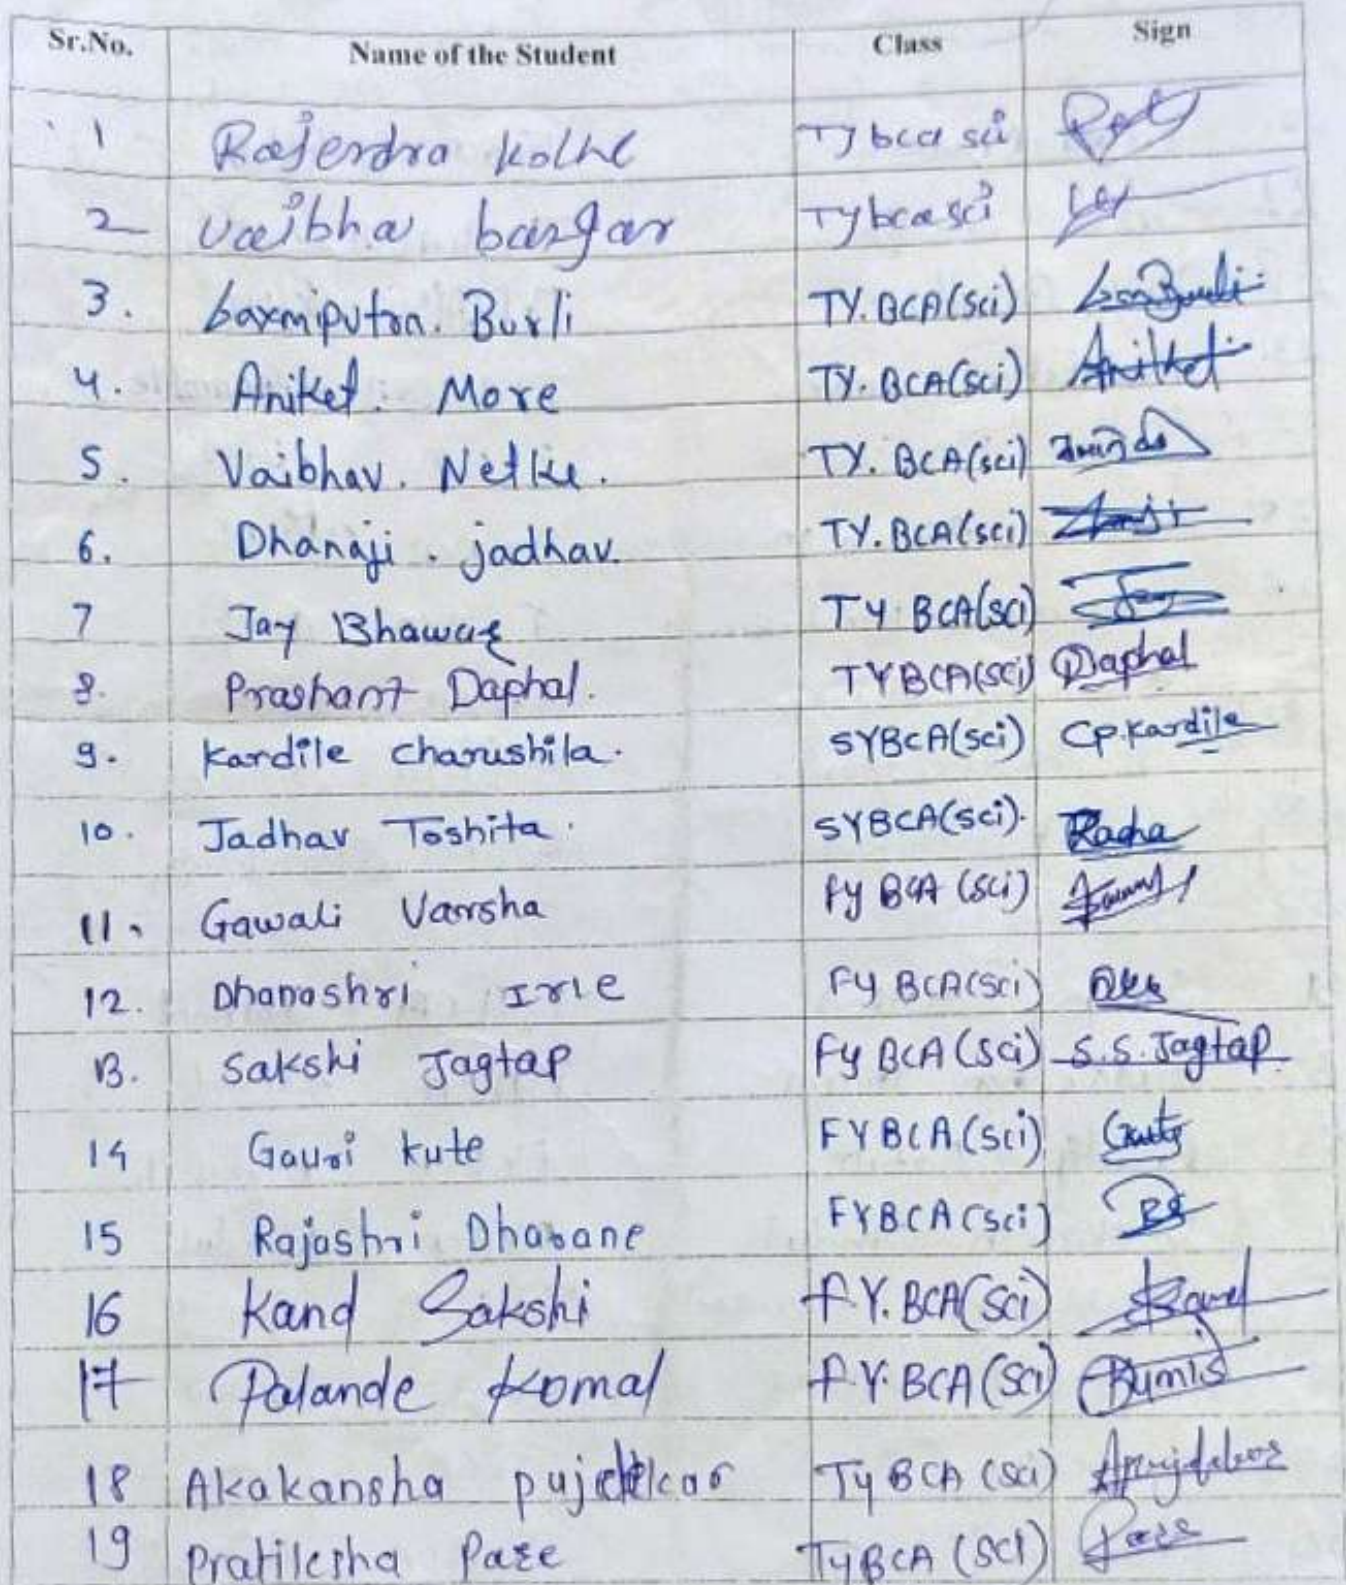 Sr.No. Name of the Student Class Sign
1 Rajendra Kolhe Ty bca sci
2 Vaibhav bangar Ty bca sci
3. Laxmiputra. Burli TY. BCA(sci)
4. Aniket. More TY. BCA(sci) Aniket
5. Vaibhav. Netke. TY. BCA(sci)
6. Dhanaji. jadhav. TY. BCA(sci)
7 Jay Bhaware TY BCA(SCI) Jay
8. Prashant Daphal. TYBCA(SCI) Daphal
9. Kardile Charushila. SYBCA(sci) CP.Kardile
10. Jadhav Toshita. SYBCA(sci).
11. Gawali Varsha Fy BCA (sci)
12. Dhanashri Irle FY BCA(sci)
13. Sakshi Jagtap Fy BCA (sci) S.S.Jagtap
14 Gauri kute FYBCA(sci)
15 Rajashri Dhavane FYBCA(sci)
16 Kand Sakshi F.Y. BCA(Sci)
17 Palande Komal F.Y. BCA(Sci)
18 Akakansha Ty BCA (sci)
19 Pratiksha Pase TyBCA (SCI)